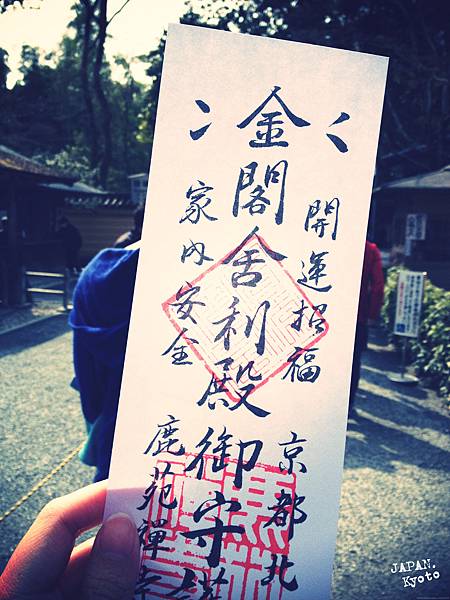 金閣舍利殿御守護
開運招福
家内安全
京都北
鹿苑禪寺
JAPAN.
Kyoto